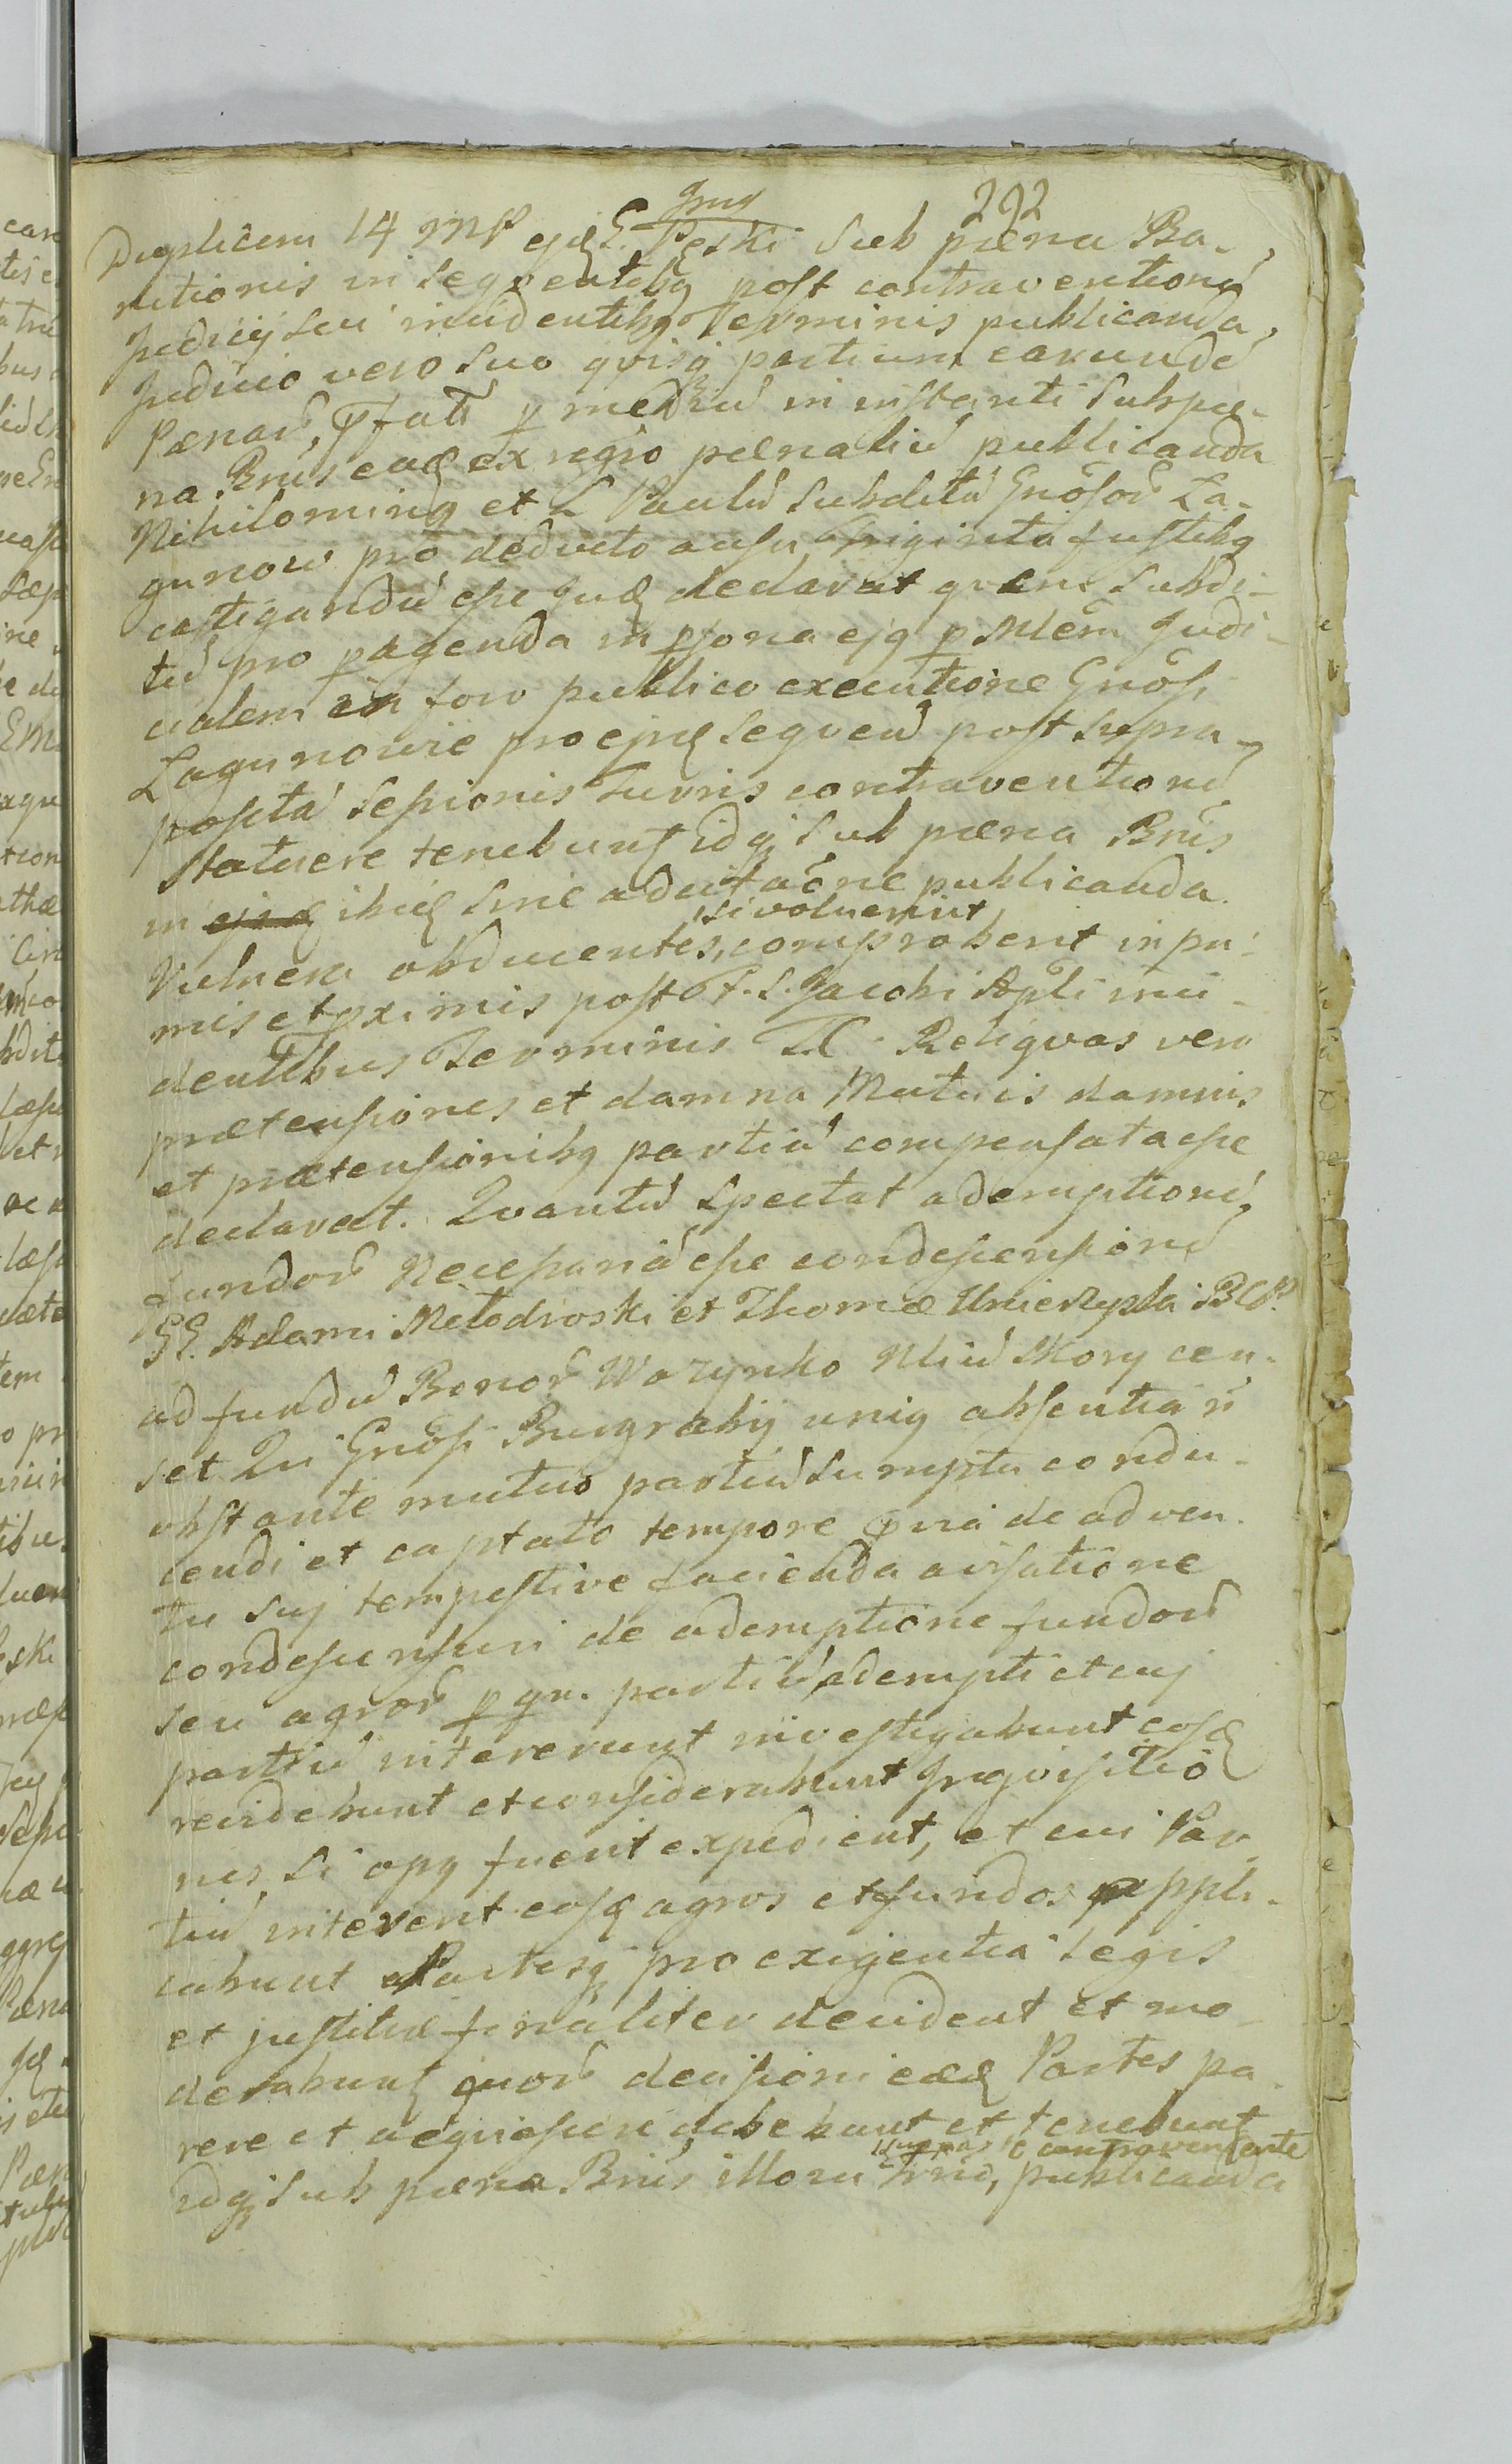 292
Duplicem 14 Mr ejq G. Pęski sub pæna Ba-
nitionis in seqventibq post contraventionē
Judicij seu incidentibq Terminis publicanda,
Judicio vero suo qvisq partium earundē
Pænarū, pfatū p mediū in instanti sub pæ-
na Bnis eaq ex regro pænaliū publicanda
Nihilominq et L Paulū subditū Gnosor Ła-
gunow pro deducto ausu triginta fustibq
castigandū esse Juq declarat qvem subdi-
tū pro pagenda in psona ejq p Mlem Judi-
cialem in foro publico executione Gnosi
Łagunowie pro ejq seqven post supra
positā sessionis Turris contraventionē
statuere tenebuntr idq sub pæna Bnis
in ibiq sine adcitaōne publicanda.
Vulnera obducentes, si voluerint, comprobent in pri-
mis et pximis post F. S. Jacobi Apli inci-
dentibus Terminis T.C. Reliqvas vero
prætensiones et damna Mutuis damnis
et prætensionibq partiū compensata esse
declarat. Qvantū spectat ademptionē
fundorū Necessariā esse condescensionē
GG. Adami Metodroski et Thomæ Unierzyski BCP.
ad fundū Bonorū Wazynko Nliū Skory cen-
set Qui Gnosi Burgrabij uniq absentia ñ
obstante mutuo partiū sumptu condu-
cendi et captato tempore pvia de adven-
tu suj tempestive facienda avisatione
condescensuri de ademptione fundorū
seu agrorū p qm. partiū adempti et cuj
partiū intererunt investigabunt eosq
revidebunt et considerabunt Inqvisitio
nes si opq fuerit expedient, et cui Par
tiū intererit eosq agros et fundos appli-
cabunt Partesq pro exigentia legis
et justitiæ finaliter decident et mo-
derabuntr qvorū decisioni eæq Partes pa-
rere et acqviescere debebunt et tenebuntr
idq sub pæna Bnis illoru Trnō, c contraveniente publicanda